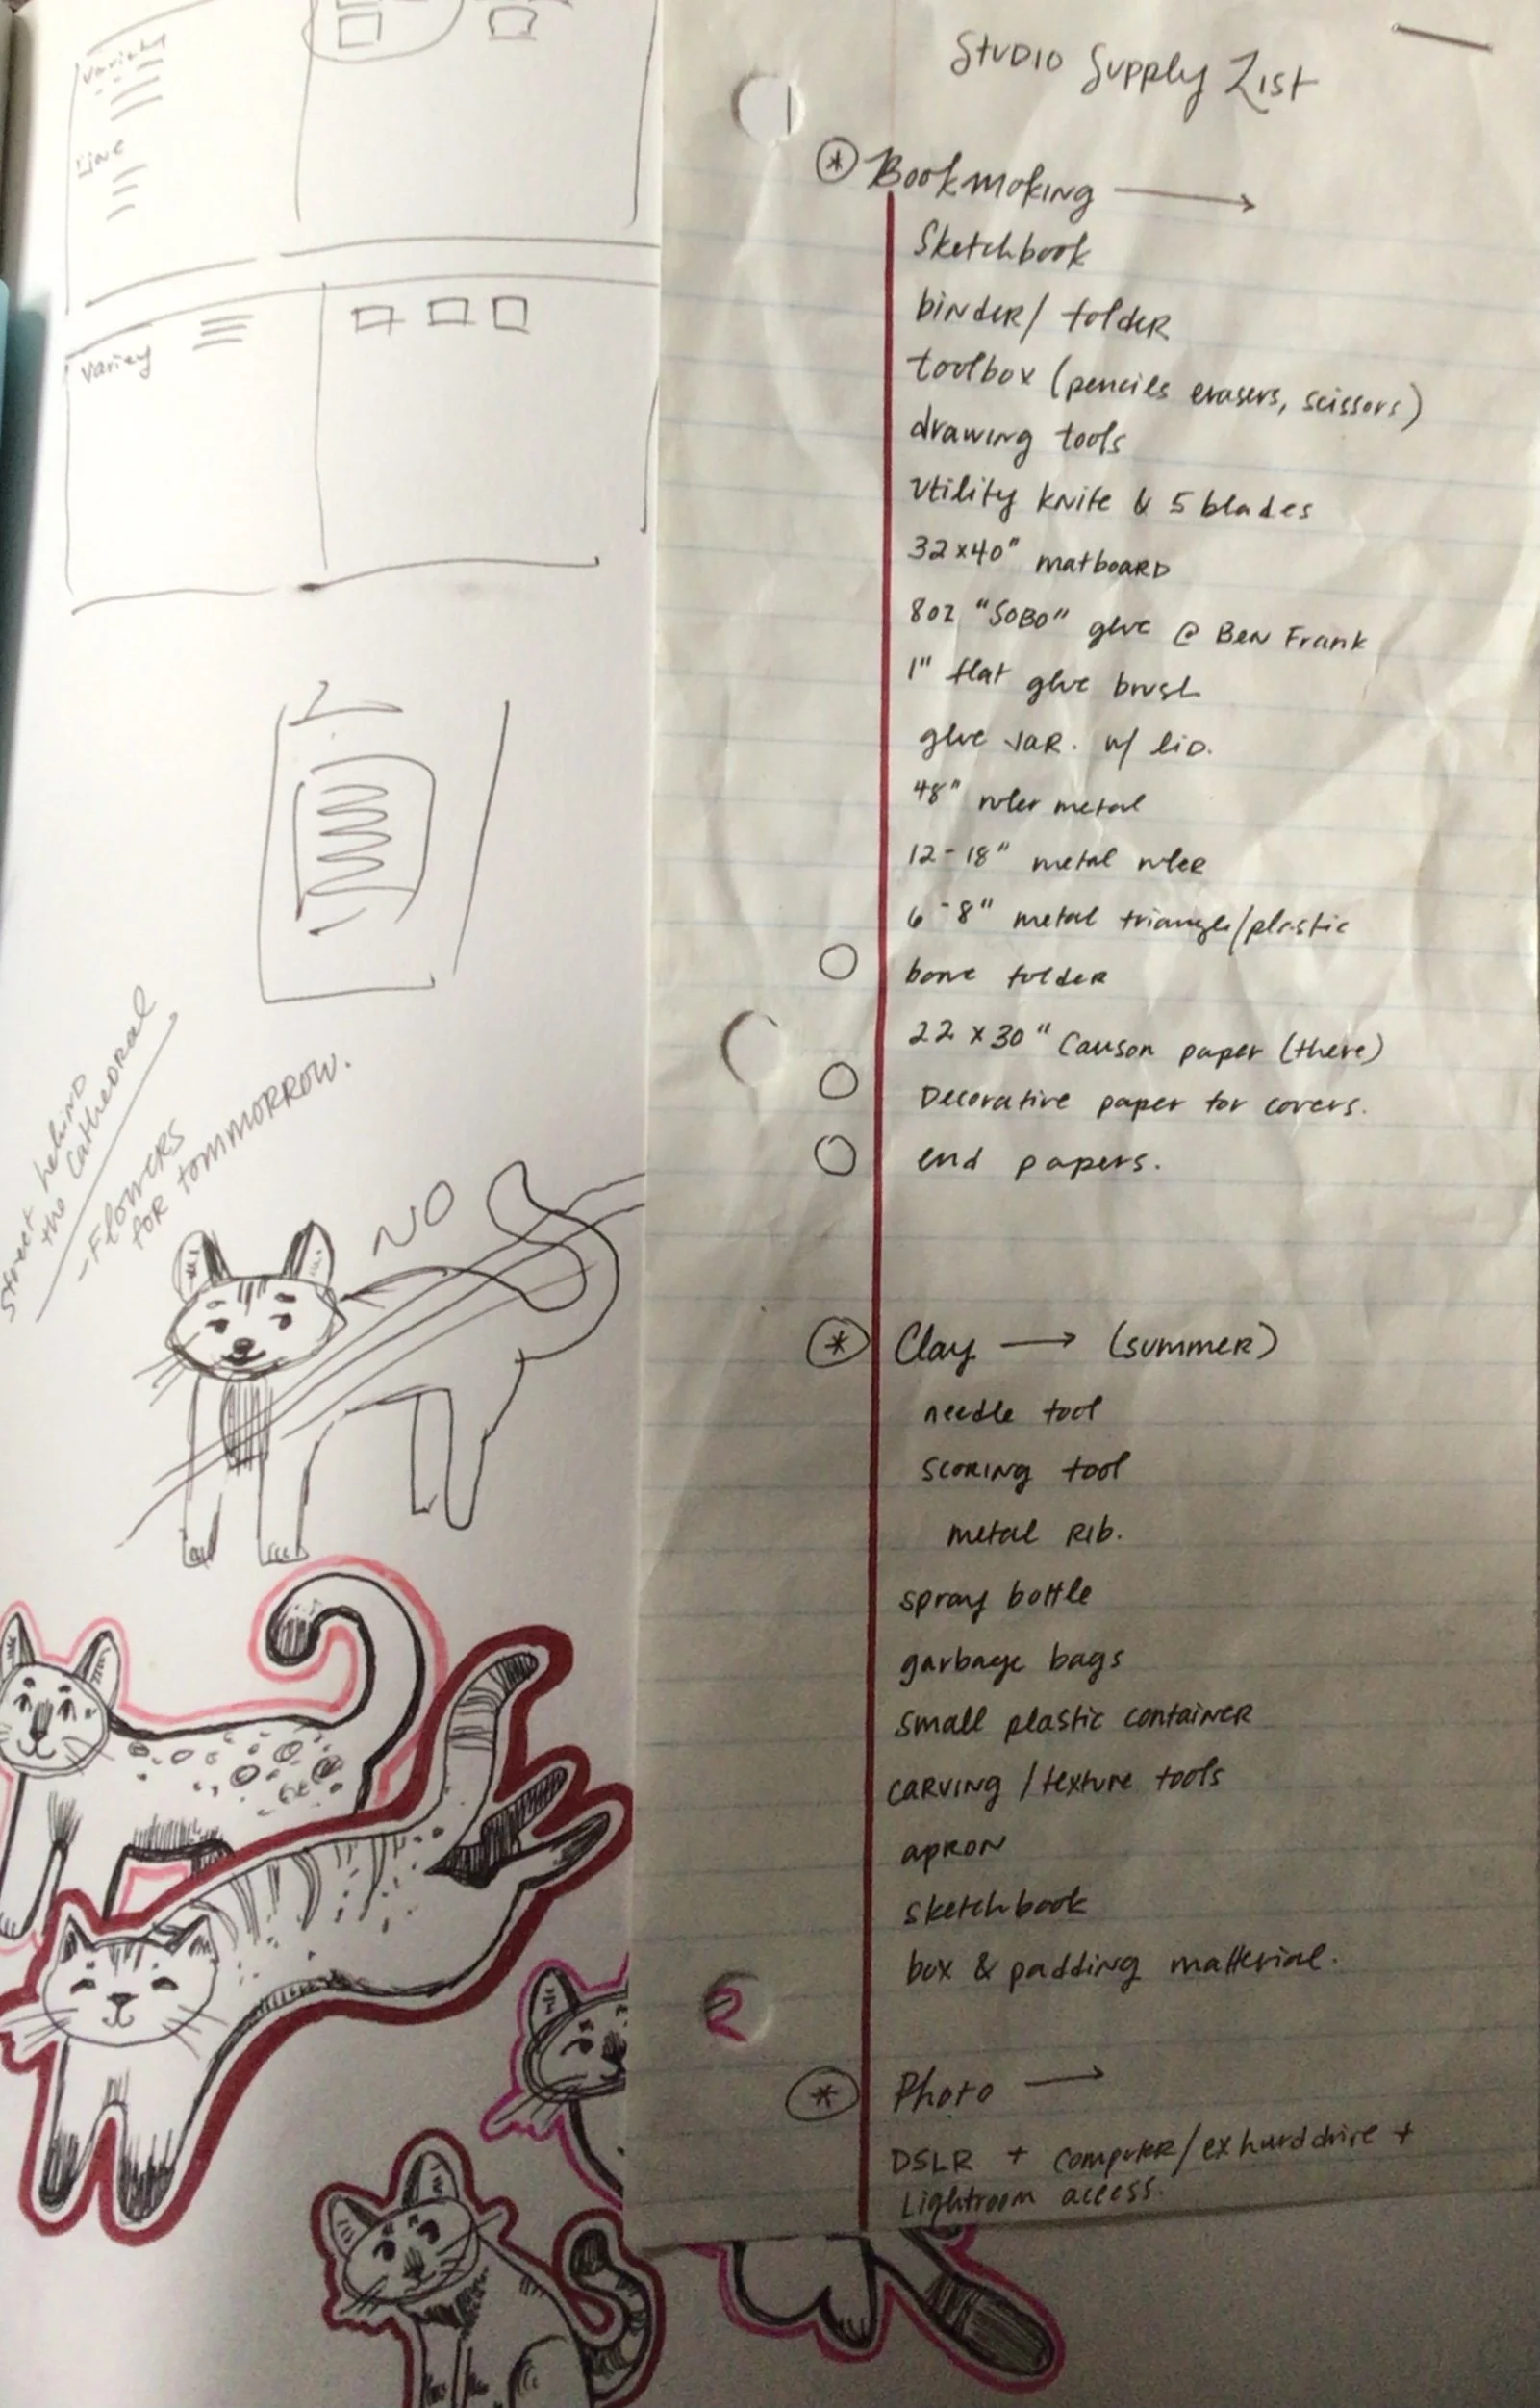 Variety
Line
Variey
street behind
the Cathedoral
-Flowers
for tommorrow.
NO
Studio Supply List
* Bookmaking →
Sketchbook
binder/ folder
toolbox (pencils erasers, scissors)
drawing tools
Utility knife & 5 blades
32x40" matboard
8oz "SOBO" glue @ Ben Frank
1" flat glue brush
glue jar. w/ lid.
48" ruler metal
12-18" metal ruler
6-8" metal triangle/plastic
bone folder
22 x 30" Canson paper (there)
Decorative paper for covers.
end papers.
* Clay → (summer)
needle tool
scoring tool
metal rib.
spray bottle
garbage bags
small plastic container
carving / texture tools
apron
sketchbook
box & padding matterial.
* Photo →
DSLR + computer/ex harddrive +
Lightroom access.